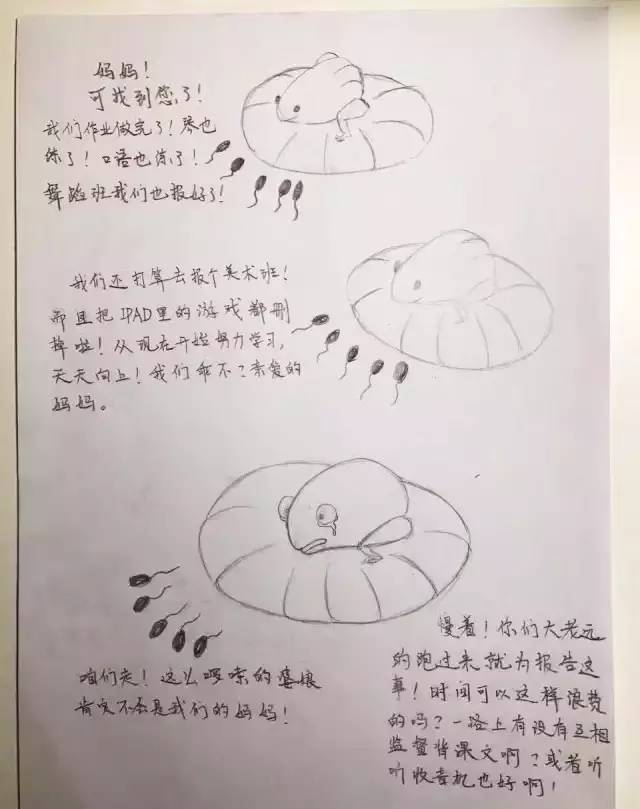 妈妈!
可找到您了!
我们作业做完了!琴也
练了!口语也练了!
舞蹈班我们也报好了!
我们还打算去报个美术班!
而且把IPAD里的游戏都删
掉啦!从现在开始努力学习,
天天向上!我们乖不?亲爱的
妈妈。
慢着!你们大老远
的跑过来就为报告这
事!时间可以这样浪费
的吗?一路上有没有互相
监督背课文啊?或者听
听收音机也好啊!
咱们走!这么啰嗦的婆娘
肯定不是我们的妈妈!